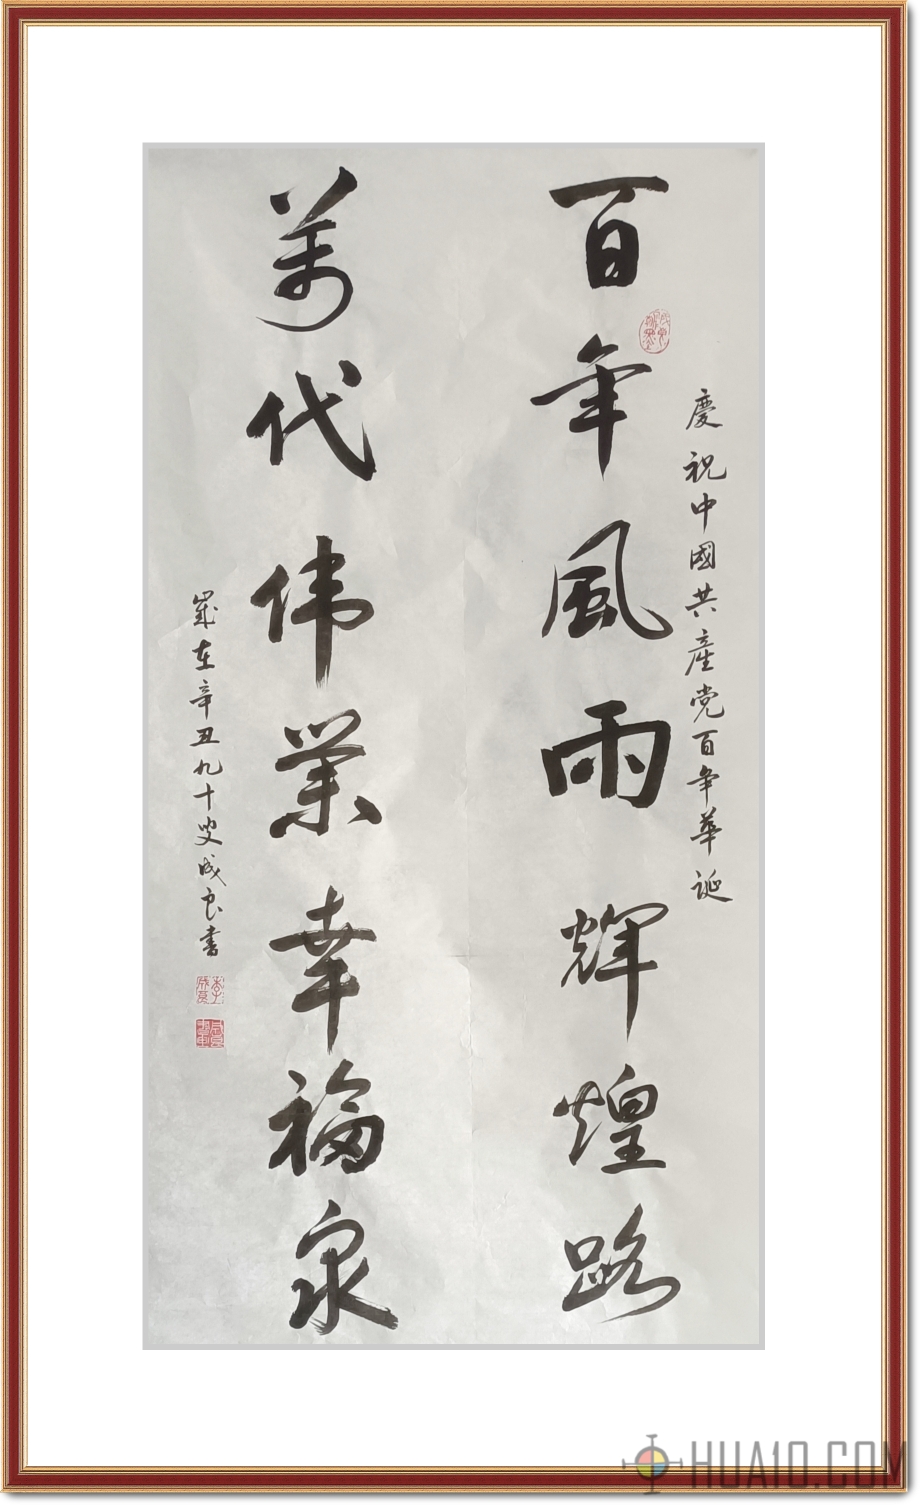 慶祝中國共產党百年華誕
百年風雨輝煌路
萬代伟業幸福泉
歲在辛丑九十叟成良書
李成良
HUA10.COM